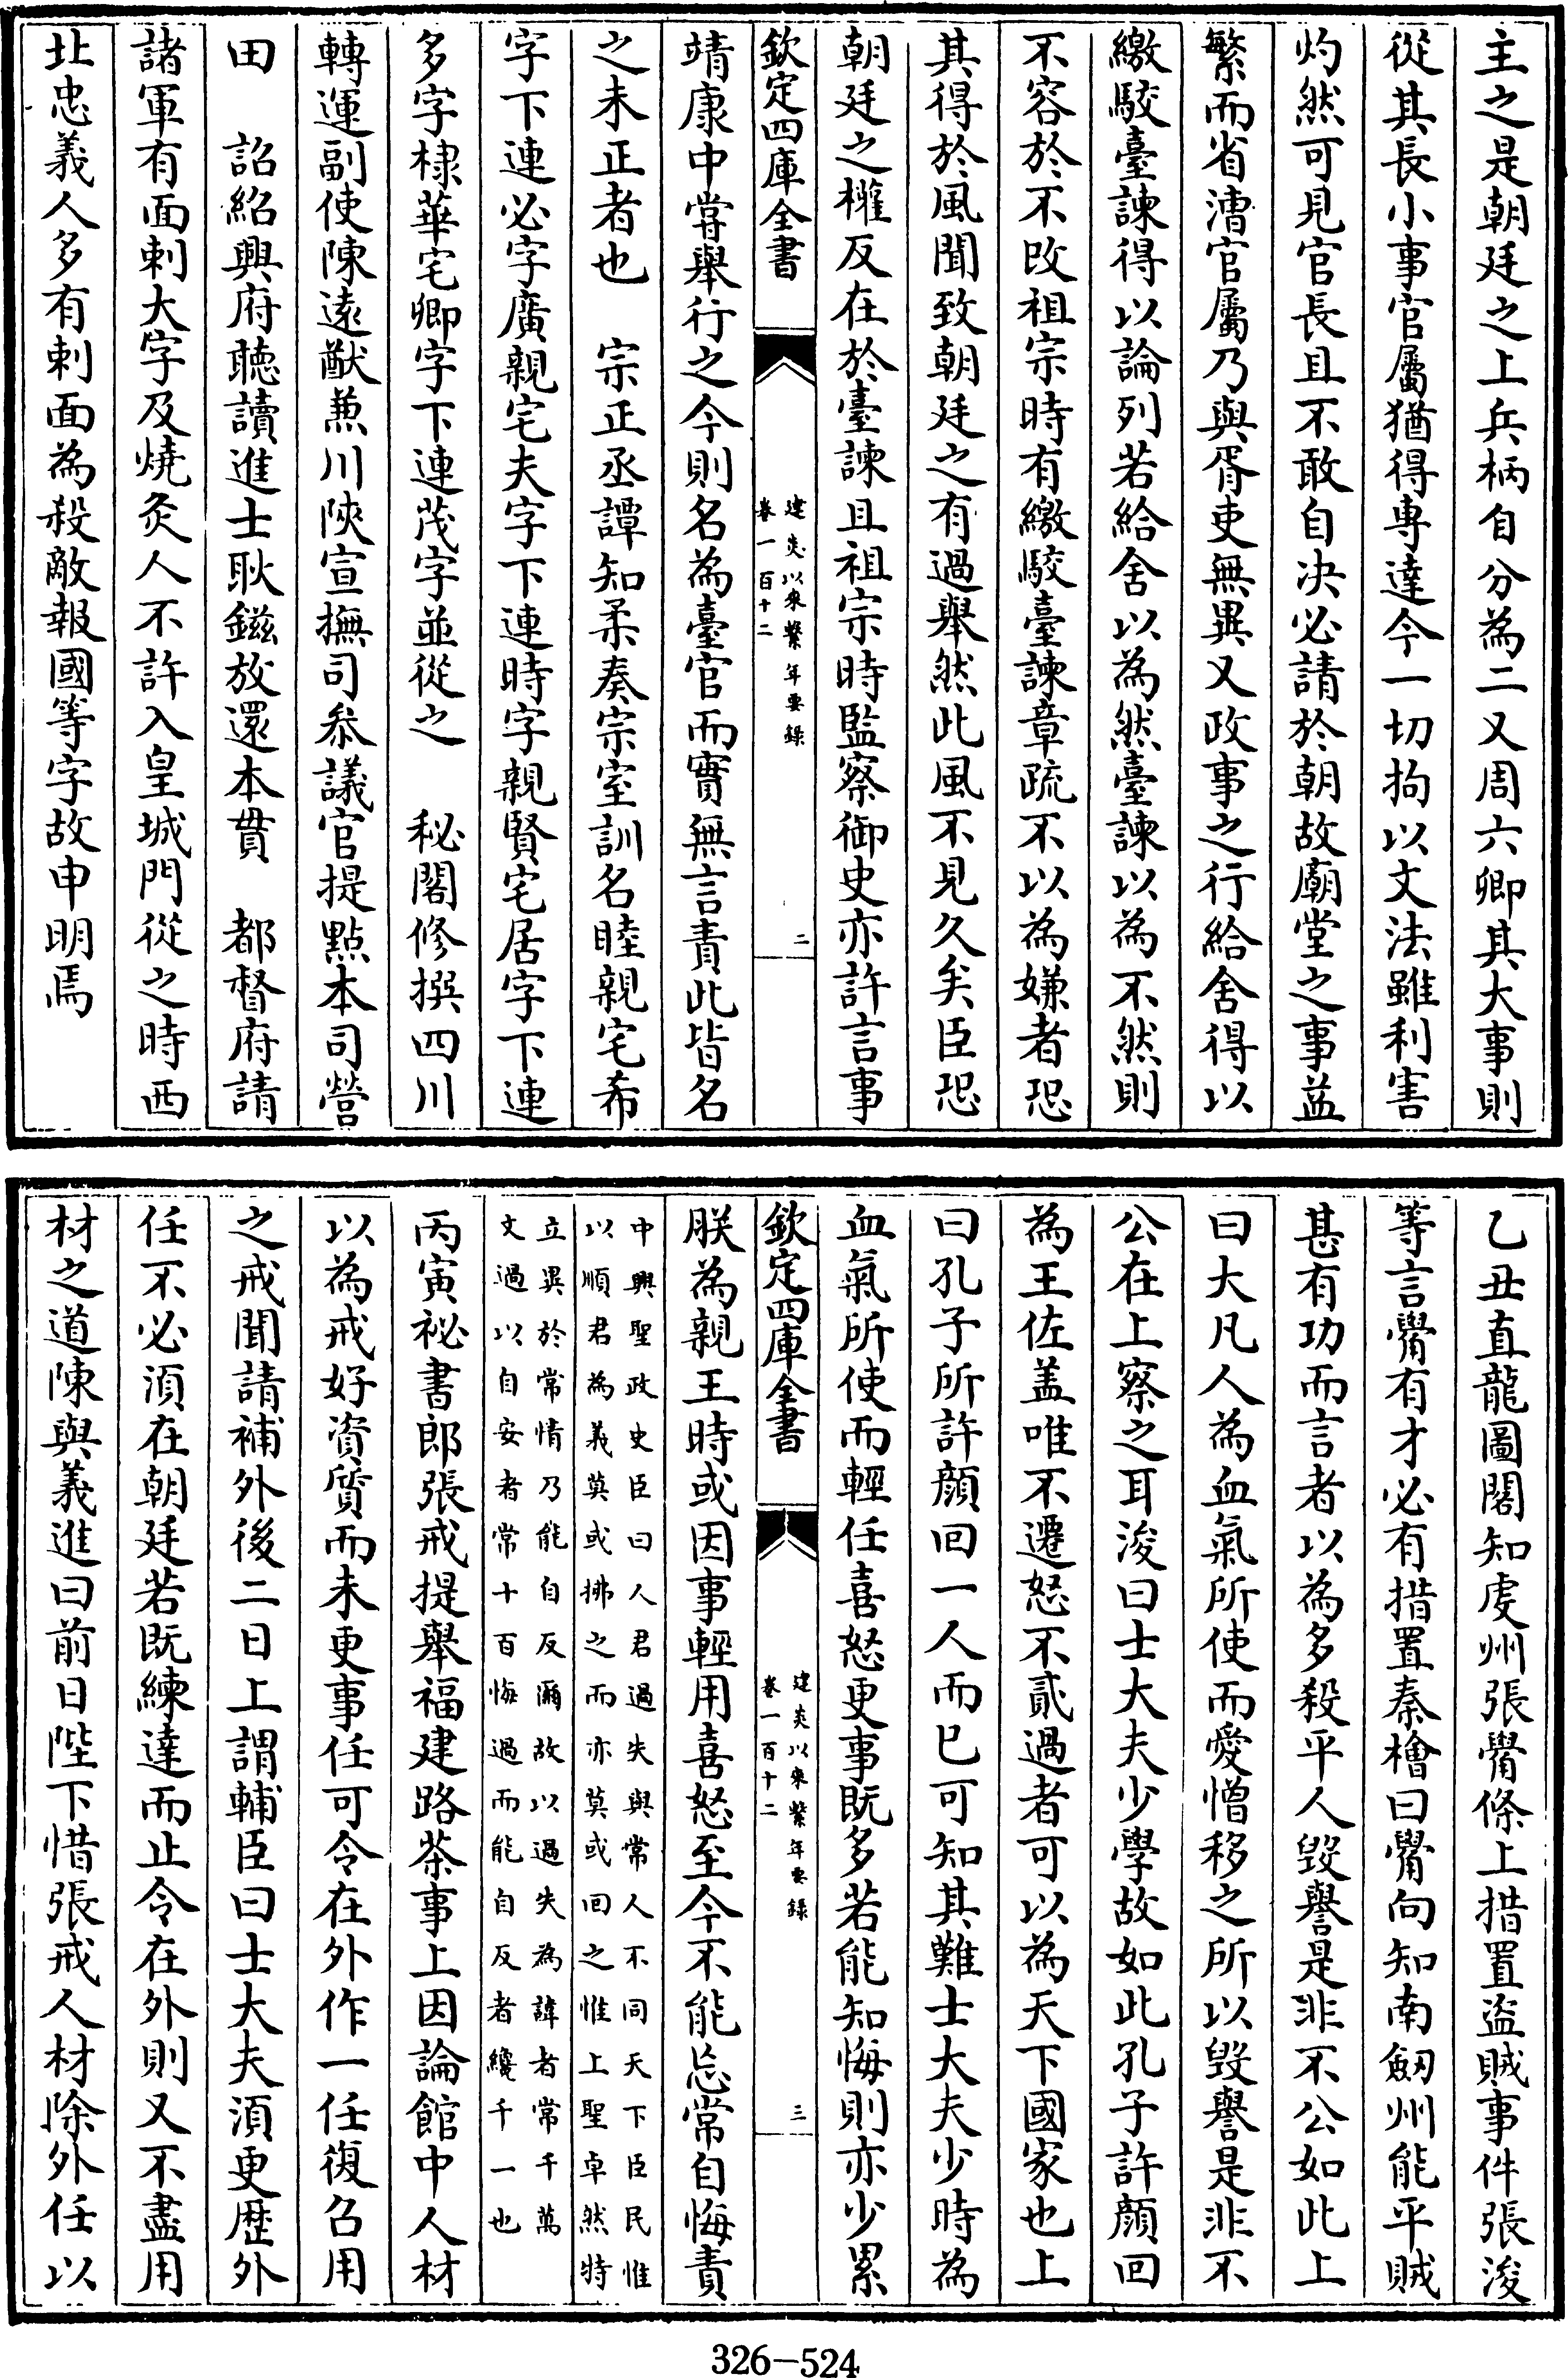 主之是朝廷之上兵柄自分為二又周六卿其大事則
從其長小事官屬猶得專達今一切拘以文法雖利害
灼然可見官長且不敢自决必請於朝故廟堂之事益
繁而省漕官屬乃與胥吏無異又政事之行給舍得以
繳駮臺諫得以論列若給舍以為然臺諫以為不然則
不容於不改祖宗時有繳駮臺諫章疏不以為嫌者恐
其得於風聞致朝廷之有過舉然此風不見久矣臣恐
朝廷之權反在於臺諫且祖宗時監察御史亦許言事
欽定四庫全書
建炎以來繫年要錄
卷一百十二
二
靖康中嘗舉行之今則名為臺官而實無言責此皆名
之未正者也　宗正丞譚知柔奏宗室訓名睦親宅希
字下連必字廣親宅夫字下連時字親賢宅居字下連
多字棣華宅卿字下連茂字並從之　秘閣修撰四川
轉運副使陳遠猷兼川陜宣撫司參議官提點本司營
田　詔紹興府聽讀進士耿鎡放還本貫　都督府請
諸軍有面刺大字及燒灸人不許入皇城門從之時西
北忠義人多有刺面為殺敵報國等字故申明焉
乙丑直龍圖閣知虔州張觷條上措置盜賊事件張浚
等言觷有才必有措置秦檜曰觷向知南劒州能平賊
甚有功而言者以為多殺平人毀譽是非不公如此上
曰大凡人為血氣所使而愛憎移之所以毀譽是非不
公在上察之耳浚曰士大夫少學故如此孔子許顏回
為王佐盖唯不遷怒不貳過者可以為天下國家也上
曰孔子所許顏回一人而已可知其難士大夫少時為
血氣所使而輕任喜怒更事既多若能知悔則亦少累
欽定四庫全書
建炎以來繫年要錄
卷一百十二
三
朕為親王時或因事輕用喜怒至今不能忘常自悔責
中興聖政史臣曰人君過失與常人不同天下臣民惟
以順君為義莫或拂之而亦莫或回之惟上聖卓然特
立異於常情乃能自反爾故以過失為諱者常千萬
文過以自安者常十百悔過而能自反者纔千一也
丙寅祕書郎張戒提舉福建路茶事上因論館中人材
以為戒好資質而未更事任可令在外作一任復召用
之戒聞請補外後二日上謂輔臣曰士大夫須更歷外
任不必須在朝廷若既練達而止令在外則又不盡用
材之道陳與義進曰前日陛下惜張戒人材除外任以
326-524